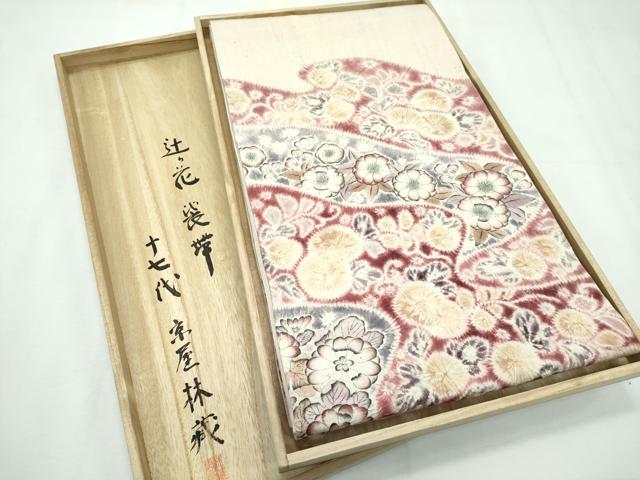 辻ヶ花 袋帯
十七代 京屋林蔵